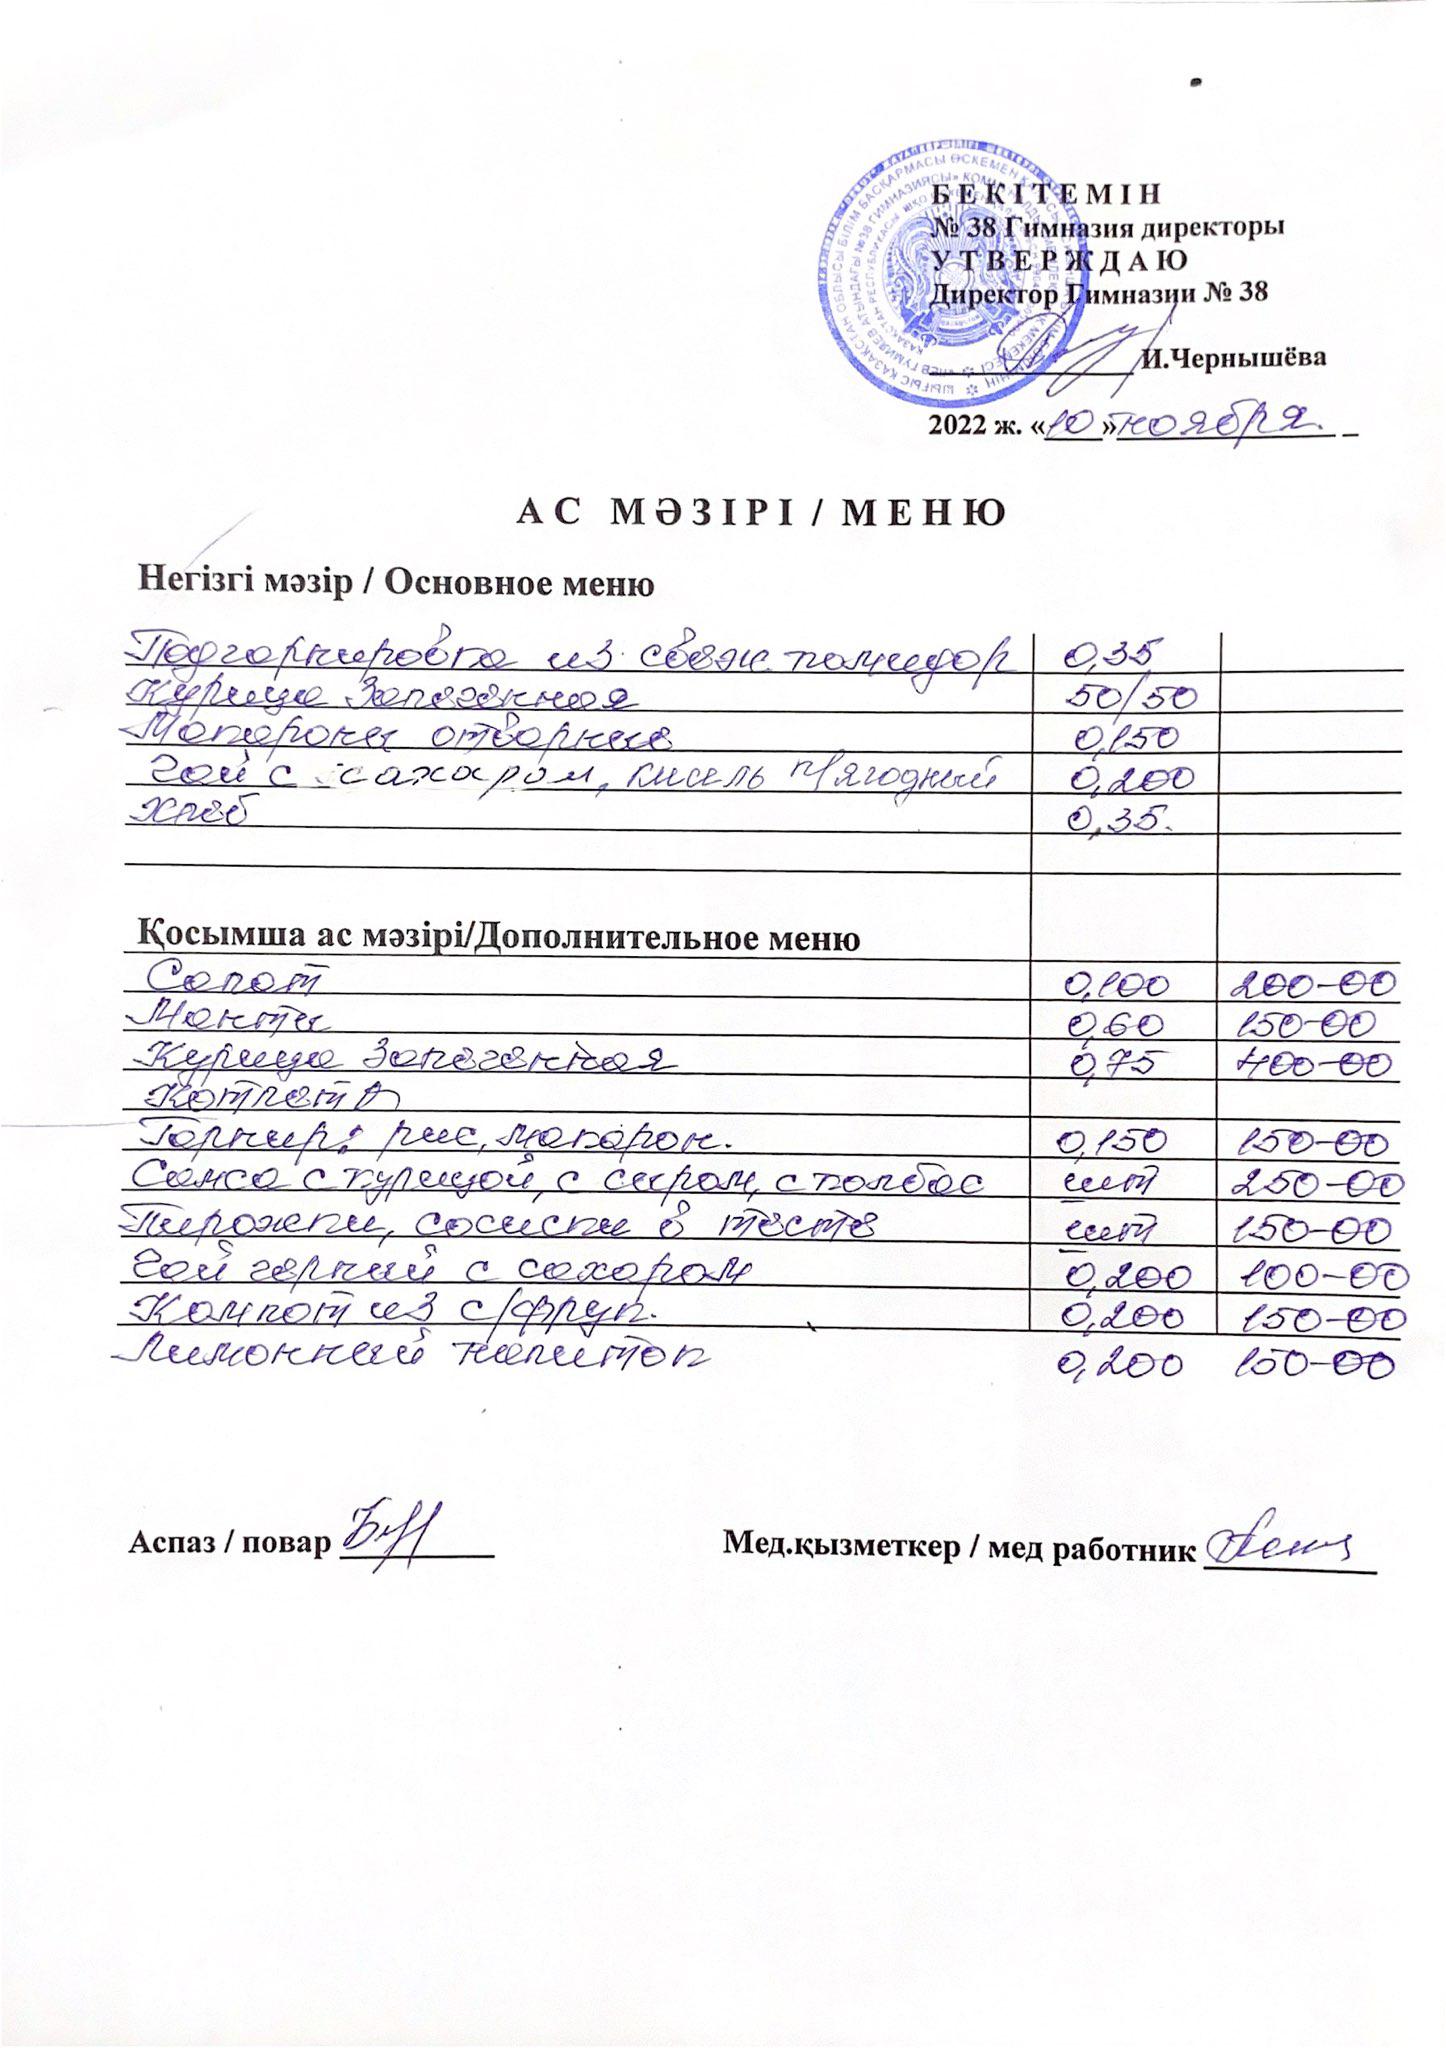 БЕКІТЕМІН
№ 38 Гимназия директоры
УТВЕРЖДАЮ
Директор Гимназии № 38
И.Чернышёва
2022 ж. «10» ноября.
АС МӘЗІРІ / МЕНЮ
Негізгі мәзір / Основное меню
Подгарнировка из свеж помидор 0,35
Курица Запеченная 50/50
Макароны отварные 0,150
Чай с сахаром, кисель п/ягодный 0,200
Хлеб 0,35.
Қосымша ас мәзірі/Дополнительное меню
Салат 0,100 200-00
Манты 0,60 150-00
Курица Запеченная 0,75 400-00
Котлета
Гарнир: рис, макарон. 0,150 150-00
Самса с курицой, с сыром, с колбас шт 250-00
Пирожки, сосиски в тесте шт 150-00
Чай черный с сахаром 0,200 100-00
Компот из с/фрук. 0,200 150-00
Лимонный напиток 0,200 150-00
Аспаз / повар Мед.қызметкер / мед работник